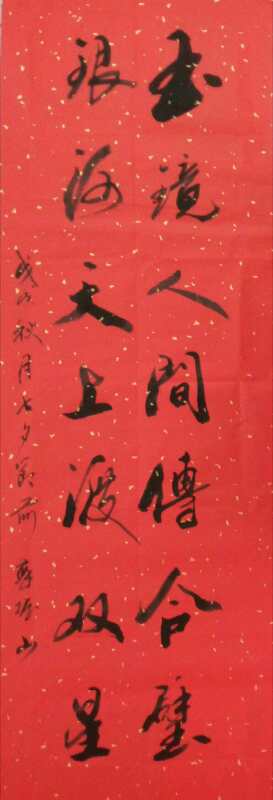 玉镜人間傳合璧
银河天上渡双星
戊戌秋月七夕前 山